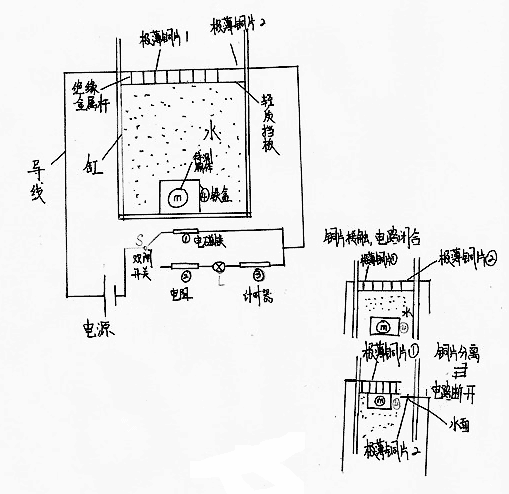 极薄铜片1
极薄铜片2
绝缘
金属杆
轻
质
挡
板
导
线
缸
水
待测
m
④铁盒
S
双向
开关
①
电磁铁
②
L
③
电阻
计时器
电源
铜片接触,电路闭合
极薄铜片①
极薄铜片②
水
m
④
极薄铜片①
铜片分离
m
④
电路断开
水面
极薄铜片2